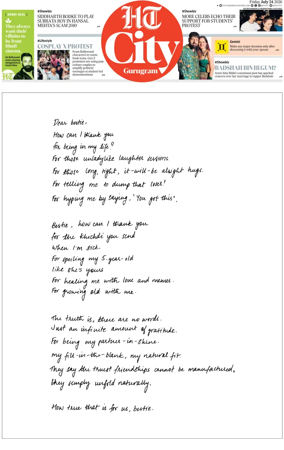 Friday July 24 2026
SPORT REEL
They always want their villains to be from Hindi cinema.
#Showbiz
SIDDHARTH BODKE TO PLAY SUBRATA ROY IN HANSAL MEHTA'S SCAM 2010
#Lifestyle
COSPLAY X PROTEST
HT
City
Gurugram
#Showbiz
MORE CELEBS ECHO THEIR SUPPORT FOR STUDENTS' PROTEST
Gemini
#Showbiz
BADSHAH BIN BEGUM?
Dear bestie.
How can I thank you
for being in my life?
For those unladylike laughter sessions
For those long, tight, it-will-be alright hugs.
For telling me to dump that loser!
For hyping me by saying, 'You got this'.
Bestie, how can I thank you
for the khichdi you send
when I'm sick.
For spoiling my 5-year-old
like she's yours
For healing me with love and memes.
For growing old with me.
The truth is, there are no words.
Just an infinite amount of gratitude.
For being my partner-in-shine.
My fill-in-the-blank, my natural fit.
They say the truest friendships cannot be manufactured,
they simply unfold naturally.
How true that is for us, bestie.